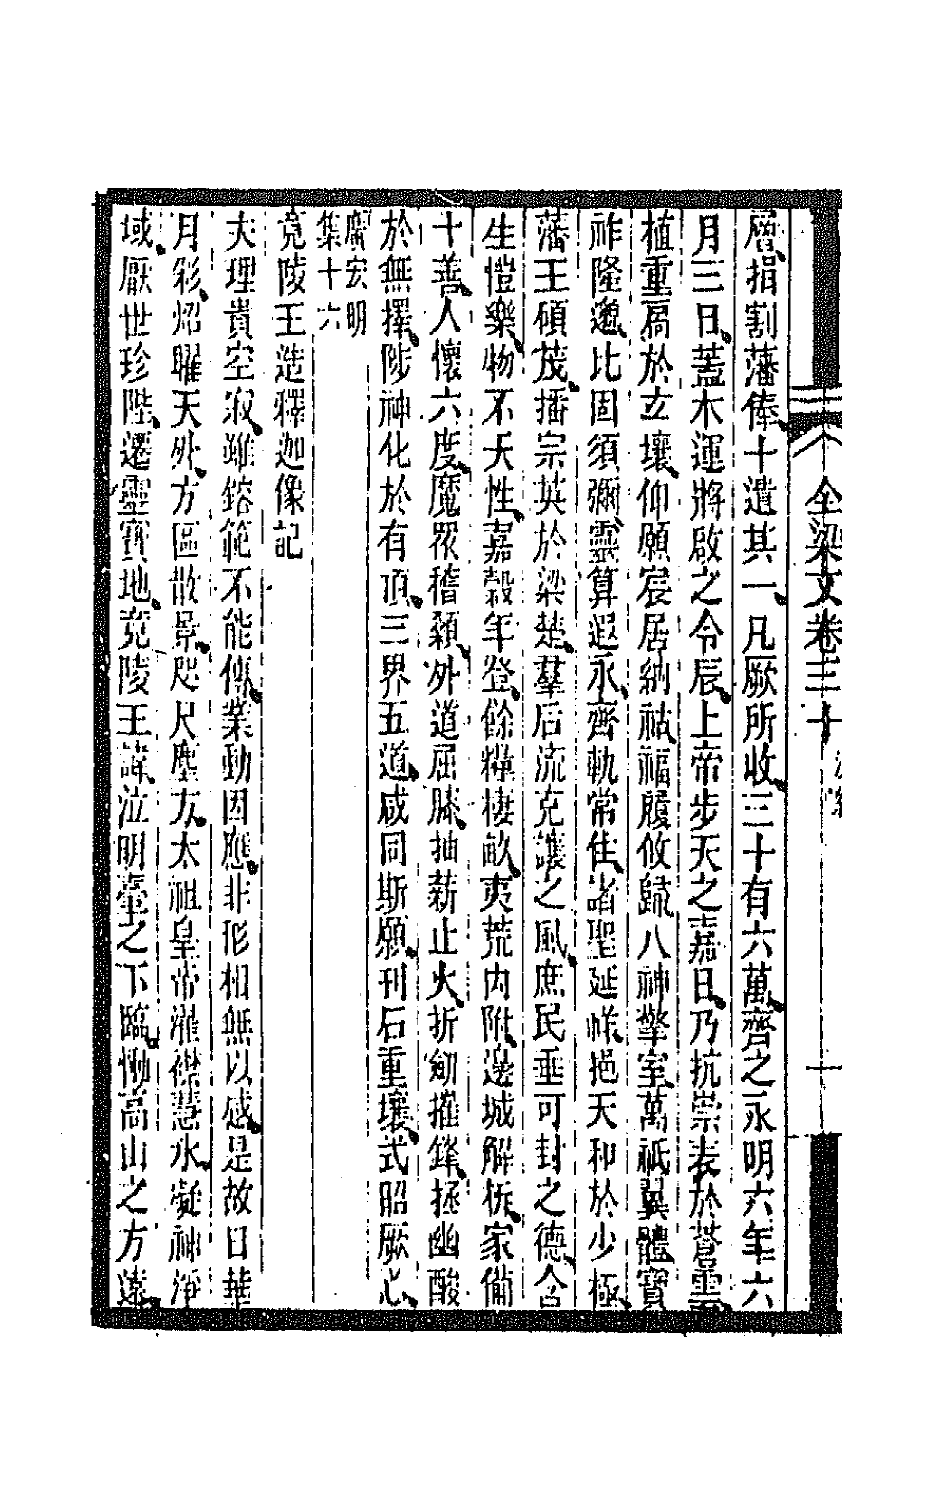 全梁文卷三十
十
層、捐割藩俸、十遺其一、凡厥所收、三十有六萬、齊之永明六年六
月三日、蓋木運將啟之令辰、上帝步天之嘉日、乃抗崇表於蒼雲、
植重扃於玄壤、仰願宸居納祜、福履攸歸、八神擎室、萬祇翼體、寶
祚隆邈、比固須彌、靈算遐永、齊軌常住、諸聖延帷、挹天和於少極、
藩王碩茂、播宗英於梁楚、羣后流克讓之風、庶民垂可封之德、含
生愷樂、物不夭性、嘉穀年登、餘糧棲畝、夷荒內附、邊城解柝、家備
十善、人懷六度、魔眾稽顙、外道屈膝、抽薪止火、折劒摧鋒、拯幽酸
於無擇、陟神化於有頂、三界五道、咸同斯願、刊石重壤、式昭厥心、
廣宏明
集十六
竟陵王造釋迦像記
夫理貴空寂、雖鎔範不能傳、業動因應、非形相無以感、是故日華
月彩、炤曜天外、方區散景、咫尺塵方、太祖皇帝濯襟慧水、凝神淨
域、厭世珍陛、遷靈寶地、竟陵王諱、泣明臺之下臨、慟高山之方遠、